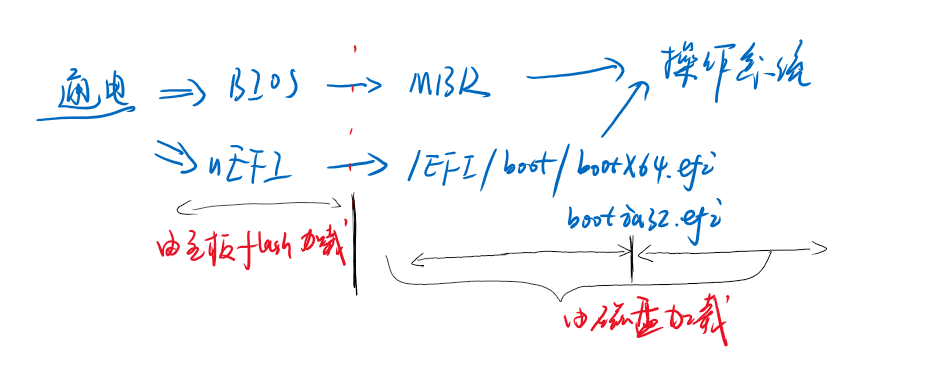 通电 => BIOS → MBR → 操作系统
uEFI → /EFI/boot/bootX64.efi
bootia32.efi
由主板flash加载
由磁盘加载